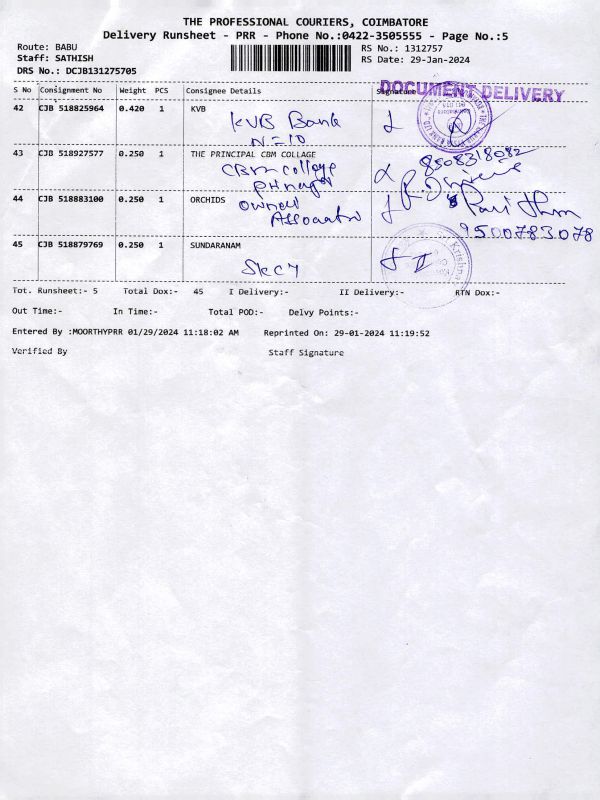 THE PROFESSIONAL COURIERS, COIMBATORE
Delivery Runsheet - PRR - Phone No.:0422-3505555 - Page No.:5
Route: BABU
RS No.: 1312757
Staff: SATHISH
RS Date: 29-Jan-2024
DRS No.: DCJB131275705
DOCUMENT DELIVERY
S No Consignment No Weight PCS Consignee Details Signature
42 CJB 518825964 0.420 1 KVB
KVB Bank
N=10
43 CJB 518927577 0.250 1 THE PRINCIPAL CBM COLLAGE
CBM College
8508318082
44 CJB 518883100 0.250 1 ORCHIDS
owner
Association
9500783078
45 CJB 518879769 0.250 1 SUNDARANAM
Krishna
Secy
Tot. Runsheet:- 5 Total Dox:- 45 I Delivery:- II Delivery:- RTN Dox:-
Out Time:- In Time:- Total POD:- Delvy Points:-
Entered By :MOORTHYPRR 01/29/2024 11:18:02 AM Reprinted On: 29-01-2024 11:19:52
Verified By Staff Signature